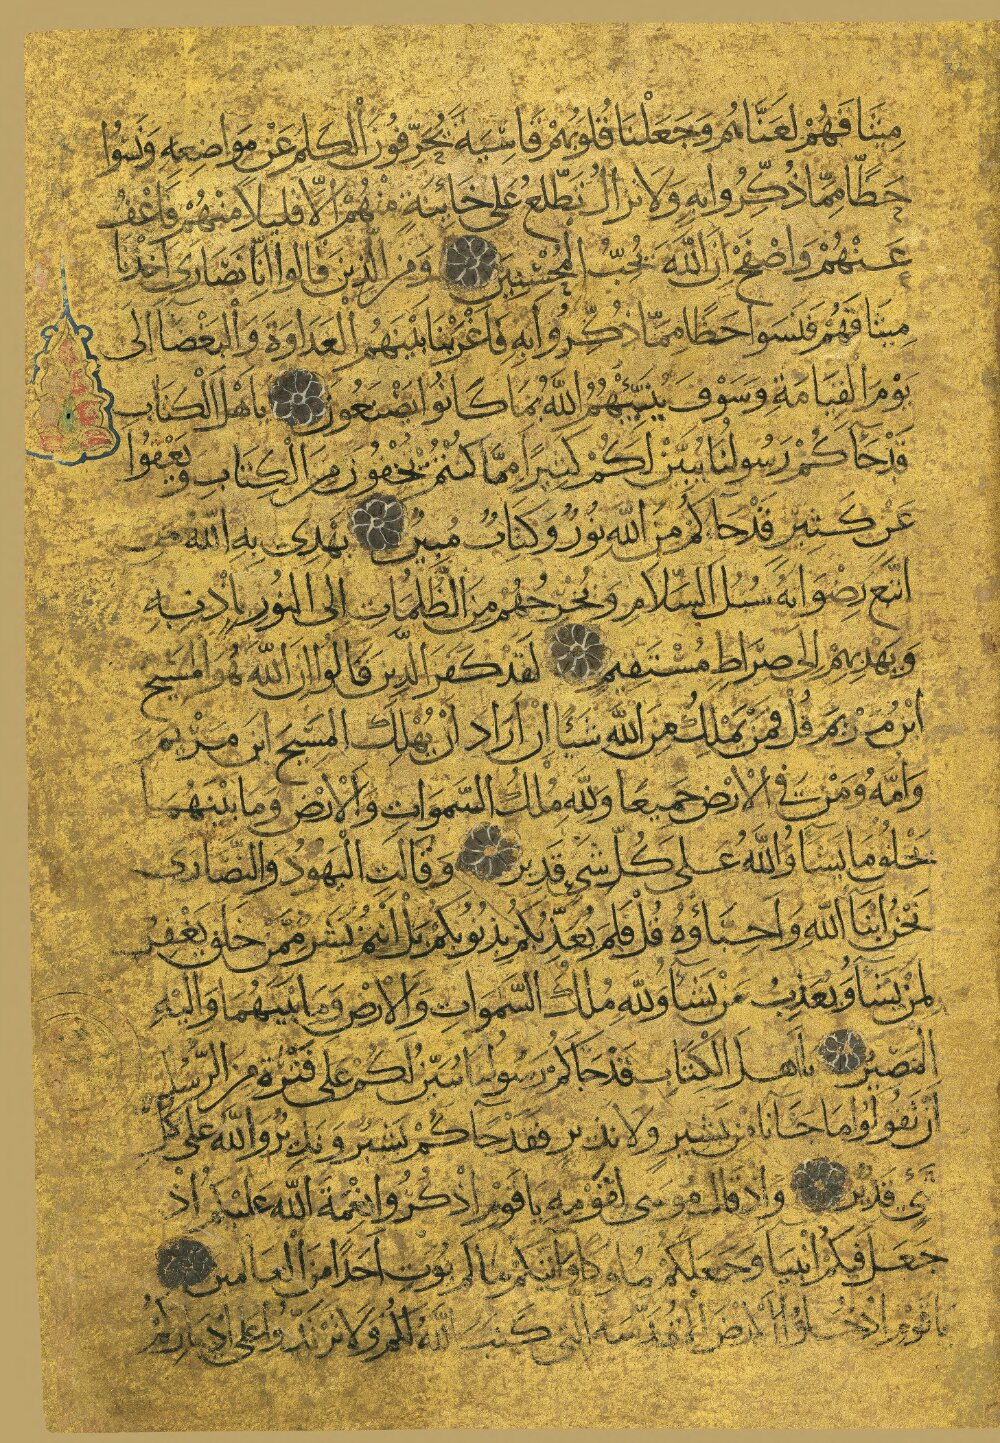 مِيثَاقَهُمْ لَعَنَّاهُمْ وَجَعَلْنَا قُلُوبَهُمْ قَاسِيَةً يُحَرِّفُونَ الْكَلِمَ عَنْ مَوَاضِعِهِ وَنَسُوا
حَظًّا مِمَّا ذُكِّرُوا بِهِ وَلَا تَزَالُ تَطَّلِعُ عَلَى خَائِنَةٍ مِنْهُمْ إِلَّا قَلِيلًا مِنْهُمْ فَاعْفُ
عَنْهُمْ وَاصْفَحْ إِنَّ اللَّهَ يُحِبُّ الْمُحْسِنِينَ وَمِنَ الَّذِينَ قَالُوا إِنَّا نَصَارَى أَخَذْنَا
مِيثَاقَهُمْ فَنَسُوا حَظًّا مِمَّا ذُكِّرُوا بِهِ فَأَغْرَيْنَا بَيْنَهُمُ الْعَدَاوَةَ وَالْبَغْضَا إِلَى
يَوْمِ الْقِيَامَةِ وَسَوْفَ يُنَبِّئُهُمُ اللَّهُ بِمَا كَانُوا يَصْنَعُونَ يَا أَهْلَ الْكِتَابِ
قَدْ جَآكُمْ رَسُولُنَا يُبَيِّنُ لَكُمْ كَثِيرًا مِمَّا كُنْتُمْ تُخْفُونَ مِنَ الْكِتَابِ وَيَعْفُوا
عَنْ كَثِيرٍ قَدْ جَآكُمْ مِنَ اللَّهِ نُورٌ وَكِتَابٌ مُبِينٌ يَهْدِي بِهِ اللَّهُ مَنِ
اتَّبَعَ رِضْوَانَهُ سُبُلَ السَّلَامِ وَيُخْرِجُهُمْ مِنَ الظُّلُمَاتِ إِلَى النُّورِ بِإِذْنِهِ
وَيَهْدِيهِمْ إِلَى صِرَاطٍ مُسْتَقِيمٍ لَقَدْ كَفَرَ الَّذِينَ قَالُوا إِنَّ اللَّهَ هُوَ الْمَسِيحُ
ابْنُ مَرْيَمَ قُلْ فَمَنْ يَمْلِكُ مِنَ اللَّهِ شَيْئًا إِنْ أَرَادَ أَنْ يُهْلِكَ الْمَسِيحَ ابْنَ مَرْيَمَ
وَأُمَّهُ وَمَنْ فِي الْأَرْضِ جَمِيعًا وَلِلَّهِ مُلْكُ السَّمَوَاتِ وَالْأَرْضِ وَمَا بَيْنَهُمَا
يَخْلُقُ مَا يَشَآ وَاللَّهُ عَلَى كُلِّ شَيْءٍ قَدِيرٌ وَقَالَتِ الْيَهُودُ وَالنَّصَارَى
نَحْنُ أَبْنَآ اللَّهِ وَأَحِبَّاؤُهُ قُلْ فَلِمَ يُعَذِّبُكُمْ بِذُنُوبِكُمْ بَلْ أَنْتُمْ بَشَرٌ مِمَّنْ خَلَقَ يَغْفِرُ
لِمَنْ يَشَآ وَيُعَذِّبُ مَنْ يَشَآ وَلِلَّهِ مُلْكُ السَّمَوَاتِ وَالْأَرْضِ وَمَا بَيْنَهُمَا وَإِلَيْهِ
الْمَصِيرُ يَا أَهْلَ الْكِتَابِ قَدْ جَآكُمْ رَسُولُنَا يُبَيِّنُ لَكُمْ عَلَى فَتْرَةٍ مِنَ الرُّسُلِ
أَنْ تَقُولُوا مَا جَآنَا مِنْ بَشِيرٍ وَلَا نَذِيرٍ فَقَدْ جَآكُمْ بَشِيرٌ وَنَذِيرٌ وَاللَّهُ عَلَى كُلِّ
شَيْءٍ قَدِيرٌ وَإِذْ قَالَ مُوسَى لِقَوْمِهِ يَا قَوْمِ اذْكُرُوا نِعْمَةَ اللَّهِ عَلَيْكُمْ إِذْ
جَعَلَ فِيكُمْ أَنْبِيَآ وَجَعَلَكُمْ مُلُوكًا وَآتَاكُمْ مَا لَمْ يُؤْتِ أَحَدًا مِنَ الْعَالَمِينَ
يَا قَوْمِ ادْخُلُوا الْأَرْضَ الْمُقَدَّسَةَ الَّتِي كَتَبَ اللَّهُ لَكُمْ وَلَا تَرْتَدُّوا عَلَى أَدْبَارِكُمْ